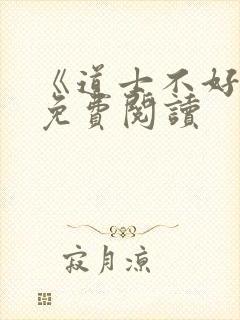 《道士不好
免費閱讀
寂月凉